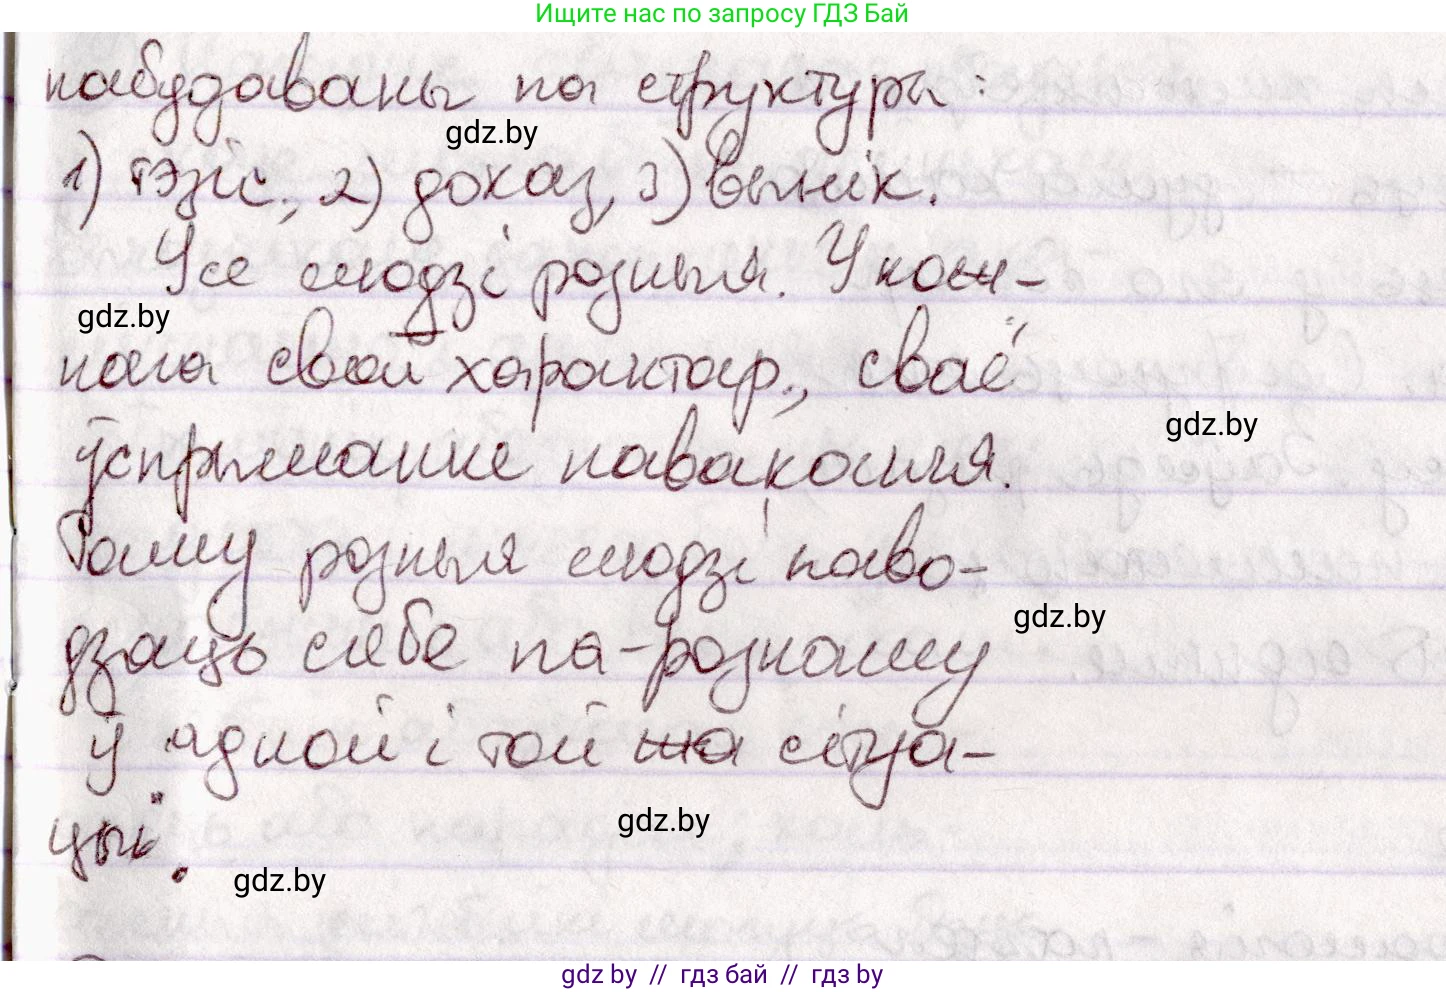 Ищите нас по запросу ГДЗ Бай
пабудаваны па структуры:
gdz.by
1) тэзіс, 2) доказ, 3) вынік.
Усе людзі розныя. У кож-
gdz.by
нага свой характар, сваё
gdz.by
ўспрыманне наваколля.
Таму розныя людзі паво-
gdz.by
дзяць сябе па-рознаму
ў адной і той жа сітуа-
gdz.by
цыі.
gdz.by
gdz by // гдз бай // гдз by